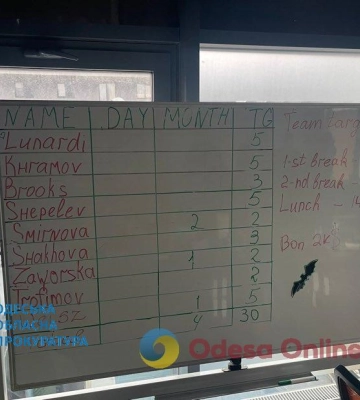 NAME DAY MONTH TG
Lunardi 5
Khramov 5
Brooks 3
Shepelev 5
Smirnova 2 2
Shakhova 3
Zaworska 1 2
Trofimov 2
1 5
4 30
Team
1-st break
2-nd break
Lunch -
Bon 2k
ОБЛАСНА
ПРОКУРАТУРА
Odesa Online